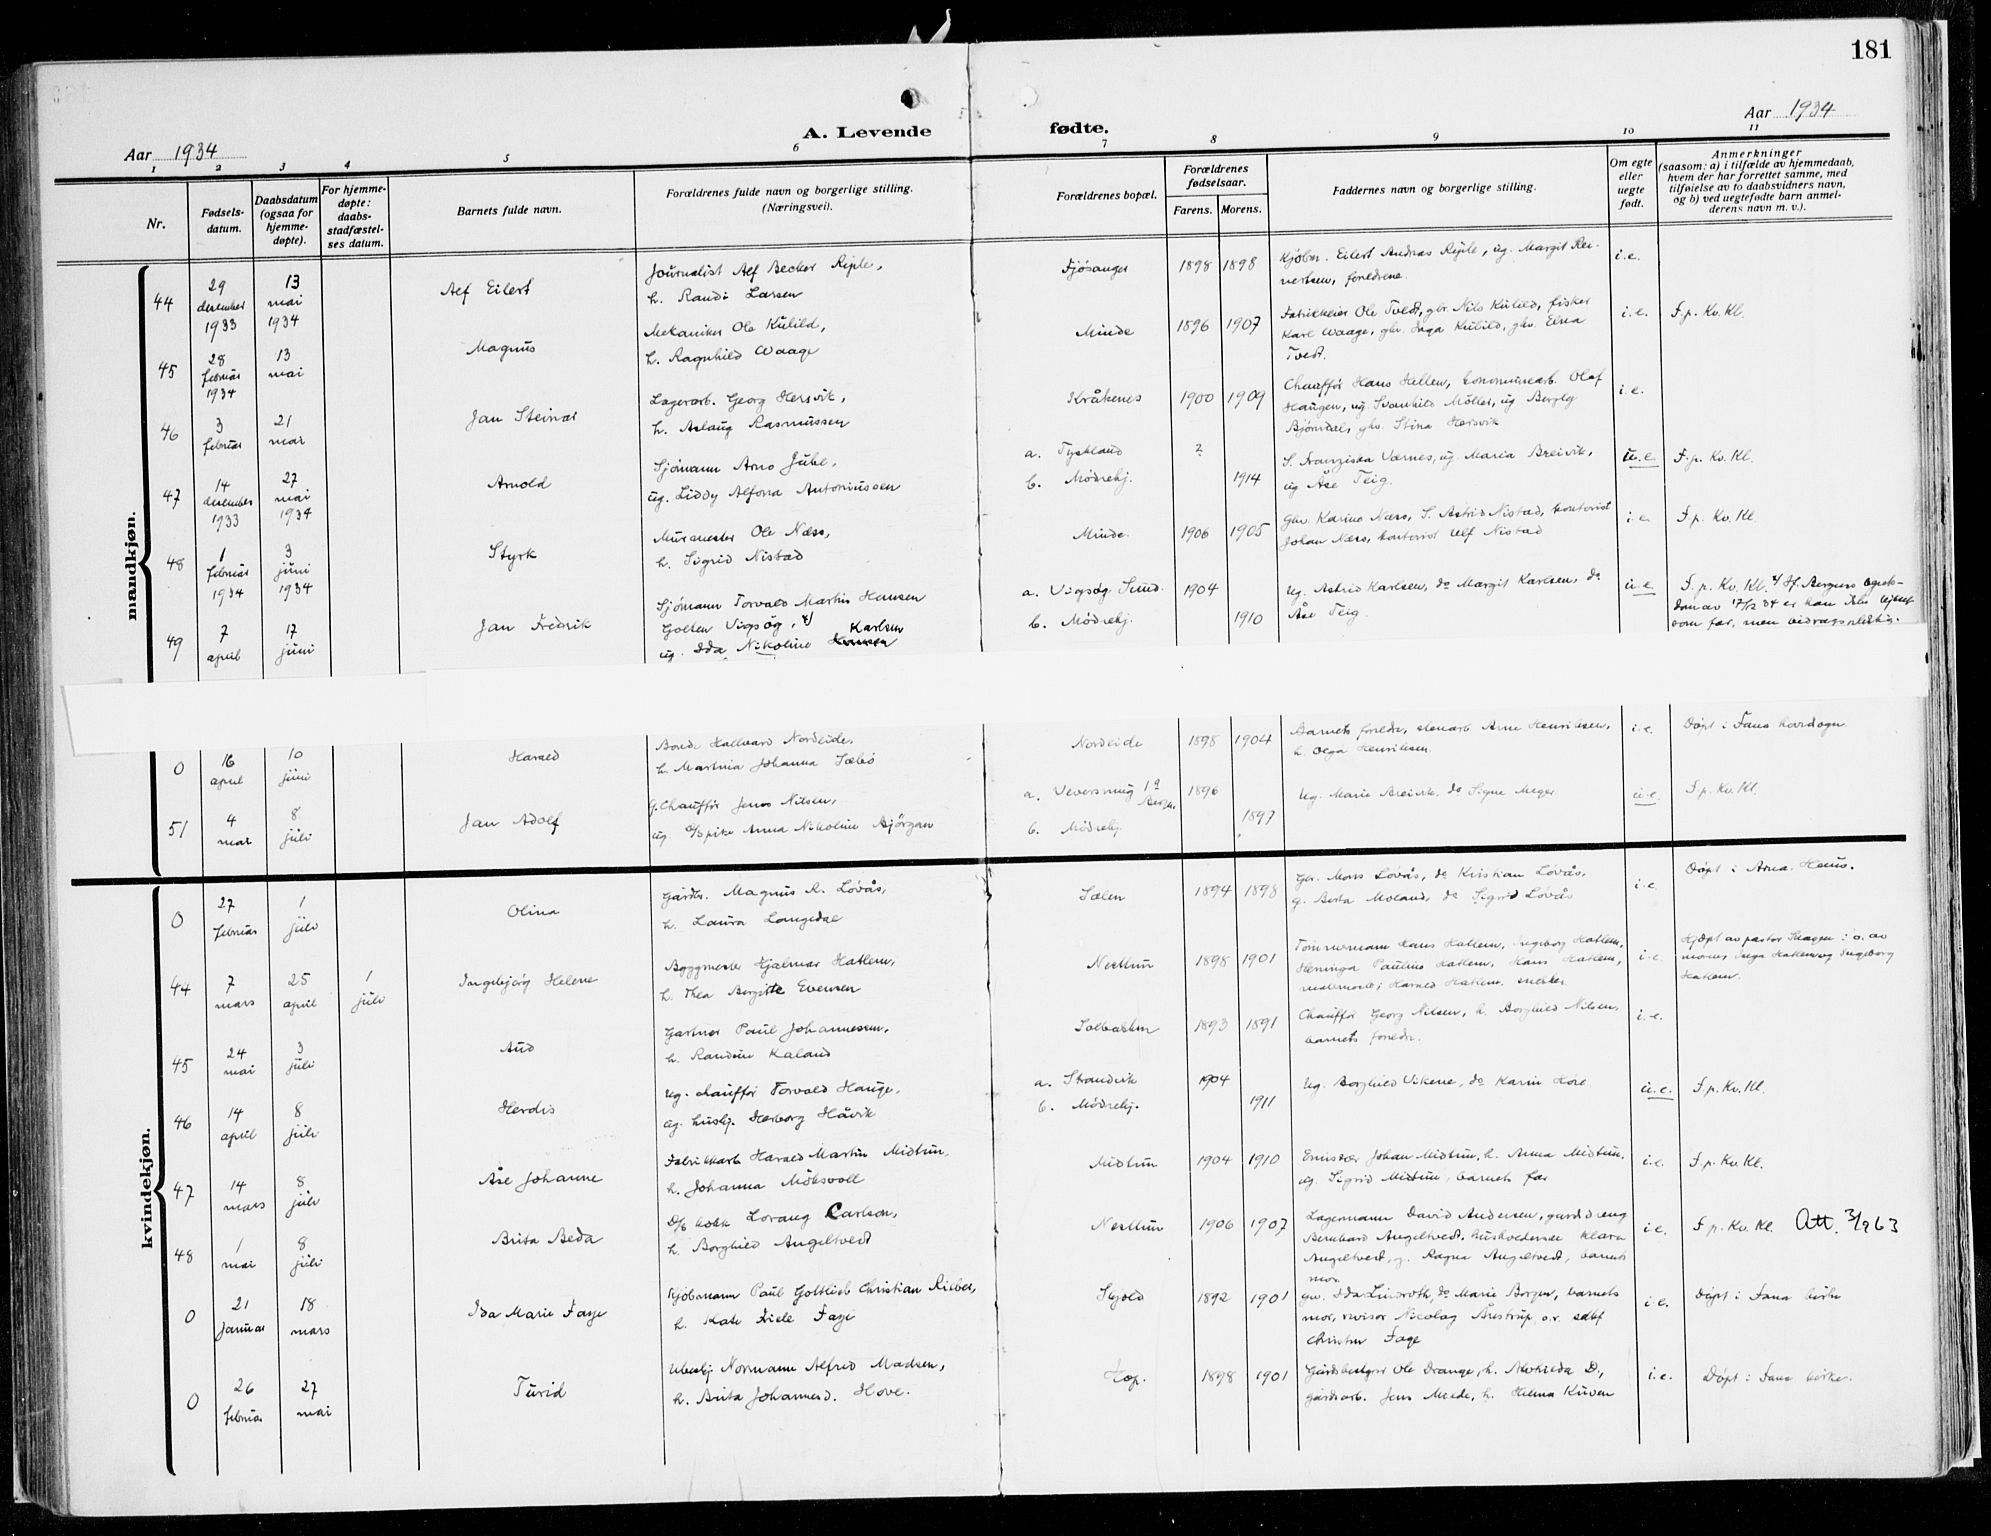 181
Aar 1934
A. Levende fødte.
Aar 1934
1 2 3 4 5 6 7 8 9 10 11
Nr.
Fødsels-
datum.
Daabsdatum
(ogsaa for
hjemme-
døpte).
For hjemme-
døpte:
daabs-
stadfæstel-
ses datum.
Barnets fulde navn.
Forældrenes fulde navn og borgerlige stilling.
(Næringsvei).
Forældrenes bopæl.
Forældrenes
fødselsaar.
Farens. Morens.
Faddernes navn og borgerlige stilling.
Om egte
eller
uegte
født.
Anmerkninger
(saasom: a) i tilfælde av hjemmedaab,
hvem der har forrettet samme, med
tilføielse av to daabsvidners navn,
og b) ved uegtefødte barn anmel-
derens navn m. v.).
mandkjøn.
44
29
desember
1933
13
mai
1934
Alf Eilert
Journalist Alf Becker Riple,
h. Randi Larsen
Fjøsanger
1898 1898
Kjøbm. Eilert Andreas Riple, ug. Margit Rei-
nertsen, foreldrene.
i.e.
45
28
februar
1934
13
mai
Magnus
Mekaniker Ole Kulild,
h. Ragnhild Waage
Minde
1896 1907
Fabrikkeier Ole Tvedt, gbr. Nils Kulild, fisker
Karl Waage, ghv. Inga Kulild, ghv. Elna
Tvedt.
i.e.
F.p. Kv. Kl.
46
3
februar
21
mar
Jan Steinar
Lagerarb. Georg Hersvik,
h. Aslaug Rasmussen
Kråkenes
1900 1909
Chauffør Hans Hellen, kommunearb. Olaf
Haugen, ug. Svanhild Möller, ug
Bjørndal, ghv. Stina Hersvik
i.e.
47
14
desember
1933
27
mai
1934
Arnold
Sjømann Arno Jubl,
ug. Liddy Alfona Antoniussen
a. Tyskland
b. Mödrehj.
?
1914
S. Franziska Værnes, ug. Maria Breivik,
ug Åse Teig.
u.e.
F.p. Kv. Kl.
48
1
februar
1934
3
juni
1934
Styrk
Murmester Ole Næss,
h. Sigrid Nistad
Minde.
1906 1905
Ghv. Karine Næss, S. Astrid Nistad, kontorist
Johan Næss, kontorist Ulf Nistad
i.e.
F.p. Kv. Kl.
49
7
april
17
juni
Jan Fredrik
Sjømann Torvald Martin Hansen
Golten Vigsøg, 4)
ug. Ida Nikoline Hansen Karlsen
a. Vigsøg Sund.
b. Mödrehj.
1904
1910
Ug. Astrid Karlsen, do Margit Karlsen, do
Åse Teig.
u.e.
F.p. Kv. Kl. 4) Hf. Bergens byrets-
dom av 17/12 34 er han ikke
som far, men bidragspliktig.
0
16
april
10
juni
Harald
Bonde Hallvard Nordeide,
h. Martnia Johanna Sæbö
Nordeide
1898 1904
Barnets foreldre, stenarb Arne Henriksen,
h. Olga Henriksen.
i.e.
Döpt i Fana
51
4
mar
8
juli
Jan Adolf
g. Chauffør Jens Nilsen,
ug. Anna Nikoline Bjørgan
a.
b. Mödrehj.
1896
1897
Ug. Marie Breivik, do Signe Meger
u.e.
F.p. Kv. Kl.
kvindekjøn.
0
27
februar
1
juli
Olina
Gårdbr. Magnus R. Lövås,
h. Laura Langedal
Sælen
1894 1898
Gbr. Mons Lövås, do Kristian Lövås,
g. Berta Moland, do Sigrid Lövås
i.e.
Döpt i Arna. Haus.
44
7
mars
25
april
1
juli
Ingebjørg Helene
Byggmester Hjalmar Hatlem,
h. Thea Bergitte Evensen
Nesttun
1898 1901
Tömmermann Hans Hatlem, Ingeborg Hatlem,
Henninga Pauline Hatlem, Hans Hatlem,
Harald Hatlem, snekker
i.e.
Hjdøpt av pastor Skagen i o. av
Inga Hatlem og Ingeborg
Hatlem.
45
24
mai
3
juli
Aud
Gartner Paul Johannessen,
h. Randine Kaland
Solbakken
1893 1891
Chauffør Georg Nilsen, h. Borghild Nilsen,
barnets foreldre.
i.e.
46
14
april
8
juli
Herdis
Ug. chauffør Torvald Hauge,
ug. hushj. Herborg Håvik
a. Strandvik
b. Mödrehj.
1904
1911
Ug. Borghild Vikene, do Karin Hole
u.e.
F.p. Kv. Kl.
47
14
mars
8
juli
Åse Johanne
Fabrikkarb Harald Martin Midtun,
h. Johanna Möksvoll
Midtun
1904 1910
Johan Midtun, h. Anna Midtun,
ug. Sigrid Midtun, barnets far
i.e.
F.p. Kv. Kl.
48
1
mai
8
juli
Brita Beda
D/s kokk Lorang Carlson,
h. Borghild Angeltvedt
Nesttun
1906 1907
Lagermann David Andersen, gårdsdreng
Bernhard Angeltvedt, husholderske Klara
Angeltvedt, g. Ragna Angeltvedt, barnets
mor.
i.e.
F.p. Kv. Kl. Att. 3/9 63
0
21
januar
18
mars
Ida Marie Faye
Kjöbmann Paul Gottlieb Christian Rieber,
h. Kate Faye
Skjold
1892 1901
gm. Ida Lindroth, do Marie Borgen, barnets
mor, revisor Nicolay Årestrup, o.r. sakf
Christen Faye
i.e.
Döpt i Fana kirke
0
26
februar
27
mai
Turid
Normann Alfred Madsen,
h. Brita Johannesd. Hove.
Hop.
1898 1901
Gårdbestyrer Ole Drange, h. D,
gårdsarb. Jens Melde, h. Helena Kuven
i.e.
Döpt i Fana kirke.